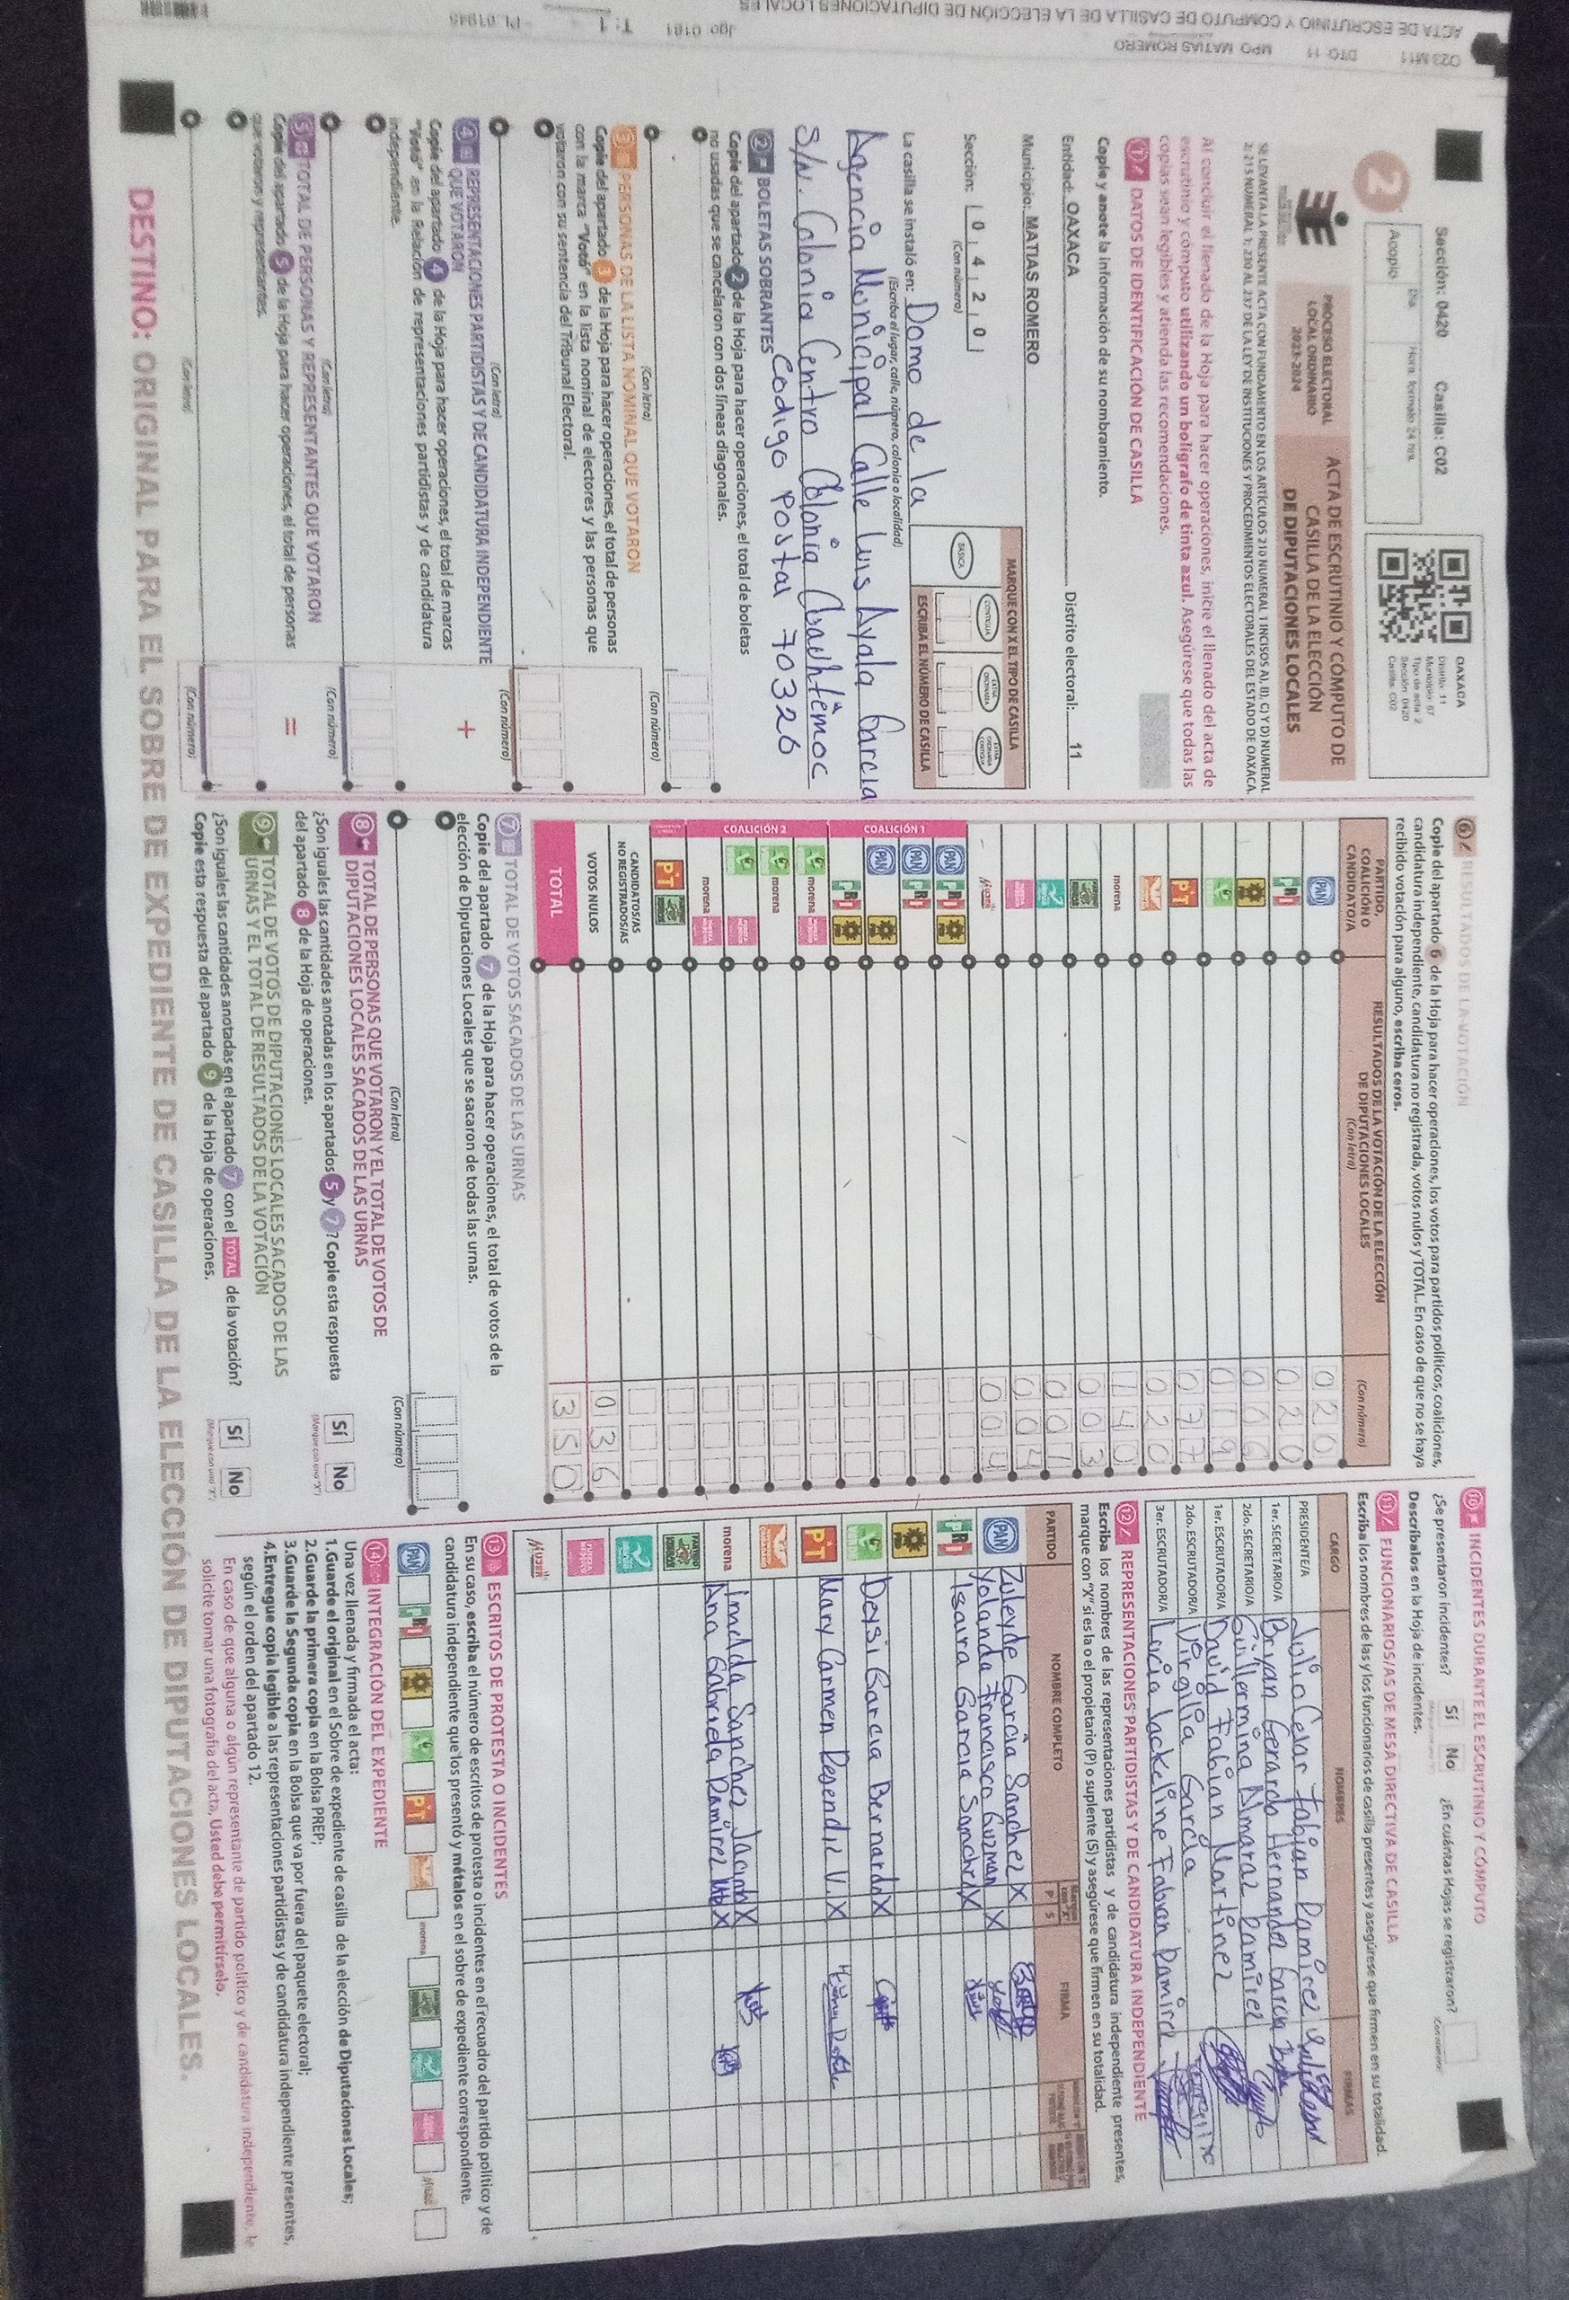 O23 M11 DTO 11 MPO MATIAS ROMERO
ACTA DE ESCRUTINIO Y COMPUTO DE CASILLA DE LA ELECCIÓN DE DIPUTACIONES LOCALES
Sección: 0420 Casilla: C02
2
Acopio
Día
Hora, formato 24 hrs.
OAXACA
Distrito: 11
Municipio: 67
Tipo de acta: 2
Sección: 0420
Casilla: C02
PROCESO ELECTORAL
LOCAL ORDINARIO
2023-2024
ACTA DE ESCRUTINIO Y CÓMPUTO DE
CASILLA DE LA ELECCIÓN
DE DIPUTACIONES LOCALES
SE LEVANTA LA PRESENTE ACTA CON FUNDAMENTO EN LOS ARTÍCULOS 210 NUMERAL 1 INCISOS A), B), C) Y D) NUMERAL
2; 215 NUMERAL 1; 230 AL 237 DE LA LEY DE INSTITUCIONES Y PROCEDIMIENTOS ELECTORALES DEL ESTADO DE OAXACA.
Al concluir el llenado de la Hoja para hacer operaciones, inicie el llenado del acta de
escrutinio y cómputo utilizando un bolígrafo de tinta azul. Asegúrese que todas las
copias sean legibles y atienda las recomendaciones.
1 DATOS DE IDENTIFICACIÓN DE CASILLA
Copie y anote la información de su nombramiento.
Entidad: OAXACA Distrito electoral: 11
Municipio: MATIAS ROMERO
Sección: 0 4 2 0
(Con número)
MARQUE CON X EL TIPO DE CASILLA
BÁSICA CONTIGUA EXTRAORDINARIA EXTRAORDINARIA CONTIGUA
ESCRIBA EL NÚMERO DE CASILLA
La casilla se instaló en: Domo de la
(Escriba el lugar, calle, número, colonia o localidad)
Agencia Municipal Calle Luis Ayala Garcia
S/N. Colonia Centro Colonia Cuauhtémoc
Codigo Postal 70326
2 BOLETAS SOBRANTES
Copie del apartado 2 de la Hoja para hacer operaciones, el total de boletas
no usadas que se cancelaron con dos líneas diagonales.
(Con letra) (Con número)
3 PERSONAS DE LA LISTA NOMINAL QUE VOTARON
Copie del apartado 3 de la Hoja para hacer operaciones, el total de personas
con la marca "Votó" en la lista nominal de electores y las personas que
votaron con su sentencia del Tribunal Electoral.
(Con letra) (Con número)
4 REPRESENTACIONES PARTIDISTAS Y DE CANDIDATURA INDEPENDIENTE
QUE VOTARON
Copie del apartado 4 de la Hoja para hacer operaciones, el total de marcas
"Votó" en la Relación de representaciones partidistas y de candidatura
independiente.
+
(Con letra) (Con número)
5 TOTAL DE PERSONAS Y REPRESENTANTES QUE VOTARON
Copie del apartado 5 de la Hoja para hacer operaciones, el total de personas
que votaron y representantes.
=
(Con letra) (Con número)
6 RESULTADOS DE LA VOTACIÓN
Copie del apartado 6 de la Hoja para hacer operaciones, los votos para partidos políticos, coaliciones,
candidatura independiente, candidatura no registrada, votos nulos y TOTAL. En caso de que no se haya
recibido votación para alguno, escriba ceros.
PARTIDO, COALICIÓN O CANDIDATO/A
RESULTADOS DE LA VOTACIÓN DE LA ELECCIÓN DE DIPUTACIONES LOCALES
(Con letra) (Con número)
PAN 020
PRI 020
PRD 006
019
PT 077
020
morena 140
003
001
004
004
COALICIÓN 1
PAN PRI PRD
PAN PRI
PAN PRD
PRI PRD
COALICIÓN 2
morena
morena
morena
PT
CANDIDATOS/AS
NO REGISTRADOS/AS
VOTOS NULOS 036
TOTAL 350
7 TOTAL DE VOTOS SACADOS DE LAS URNAS
Copie del apartado 7 de la Hoja para hacer operaciones, el total de votos de la
elección de Diputaciones Locales que se sacaron de todas las urnas.
(Con letra) (Con número)
8 TOTAL DE PERSONAS QUE VOTARON Y EL TOTAL DE VOTOS DE
DIPUTACIONES LOCALES SACADOS DE LAS URNAS
¿Son iguales las cantidades anotadas en los apartados 5 y 7? Copie esta respuesta
del apartado 8 de la Hoja de operaciones.
Sí No
9 TOTAL DE VOTOS DE DIPUTACIONES LOCALES SACADOS DE LAS
URNAS Y EL TOTAL DE RESULTADOS DE LA VOTACIÓN
¿Son iguales las cantidades anotadas en el apartado 7 con el TOTAL de la votación?
Copie esta respuesta del apartado 9 de la Hoja de operaciones.
Sí No
10 INCIDENTES DURANTE EL ESCRUTINIO Y CÓMPUTO
¿Se presentaron incidentes? Sí No ¿En cuántas Hojas se registraron?
Descríbalos en la Hoja de incidentes.
11 FUNCIONARIOS/AS DE MESA DIRECTIVA DE CASILLA
Escriba los nombres de las y los funcionarios de casilla presentes y asegúrese que firmen en su totalidad.
CARGO NOMBRES FIRMAS
PRESIDENTE/A Julio Cesar Fabian Ramirez
1er. SECRETARIO/A Bryan Gerardo Hernandez Garcia
2do. SECRETARIO/A Guillermina Almaraz Ramirez
1er. ESCRUTADOR/A David Fabian Martinez
2do. ESCRUTADOR/A Virgilia Garcia
3er. ESCRUTADOR/A Lucia Jackeline Fabian Ramirez
12 REPRESENTACIONES PARTIDISTAS Y DE CANDIDATURA INDEPENDIENTE
Escriba los nombres de las representaciones partidistas y de candidatura independiente presentes,
marque con "X" si es la o el propietario (P) o suplente (S) y asegúrese que firmen en su totalidad.
PARTIDO NOMBRE COMPLETO P S FIRMA
PAN Zuleyde Garcia Sanchez X
Yolanda Francisco Guzman X
PRI Isaira Garcia Sanchez X
PRD
Deysi Garcia Bernardo X
PT Mary Carmen Resendiz V. X
morena Imelda Sanchez Jacinto X
Ana Gabriela Ramirez X
MUJER
13 ESCRITOS DE PROTESTA O INCIDENTES
En su caso, escriba el número de escritos de protesta o incidentes en el recuadro del partido político y de
candidatura independiente que los presentó y métalos en el sobre de expediente correspondiente.
PAN PRI PT morena
14 INTEGRACIÓN DEL EXPEDIENTE
Una vez llenada y firmada el acta:
1.Guarde el original en el Sobre de expediente de casilla de la elección de Diputaciones Locales;
2.Guarde la primera copia en la Bolsa PREP;
3.Guarde la Segunda copia en la Bolsa que va por fuera del paquete electoral;
4.Entregue copia legible a las representaciones partidistas y de candidatura independiente presentes,
según el orden del apartado 12.
En caso de que alguna o algún representante de partido político y de candidatura independiente, le
solicite tomar una fotografía del acta, Usted debe permitírselo.
DESTINO: ORIGINAL PARA EL SOBRE DE EXPEDIENTE DE CASILLA DE LA ELECCIÓN DE DIPUTACIONES LOCALES.